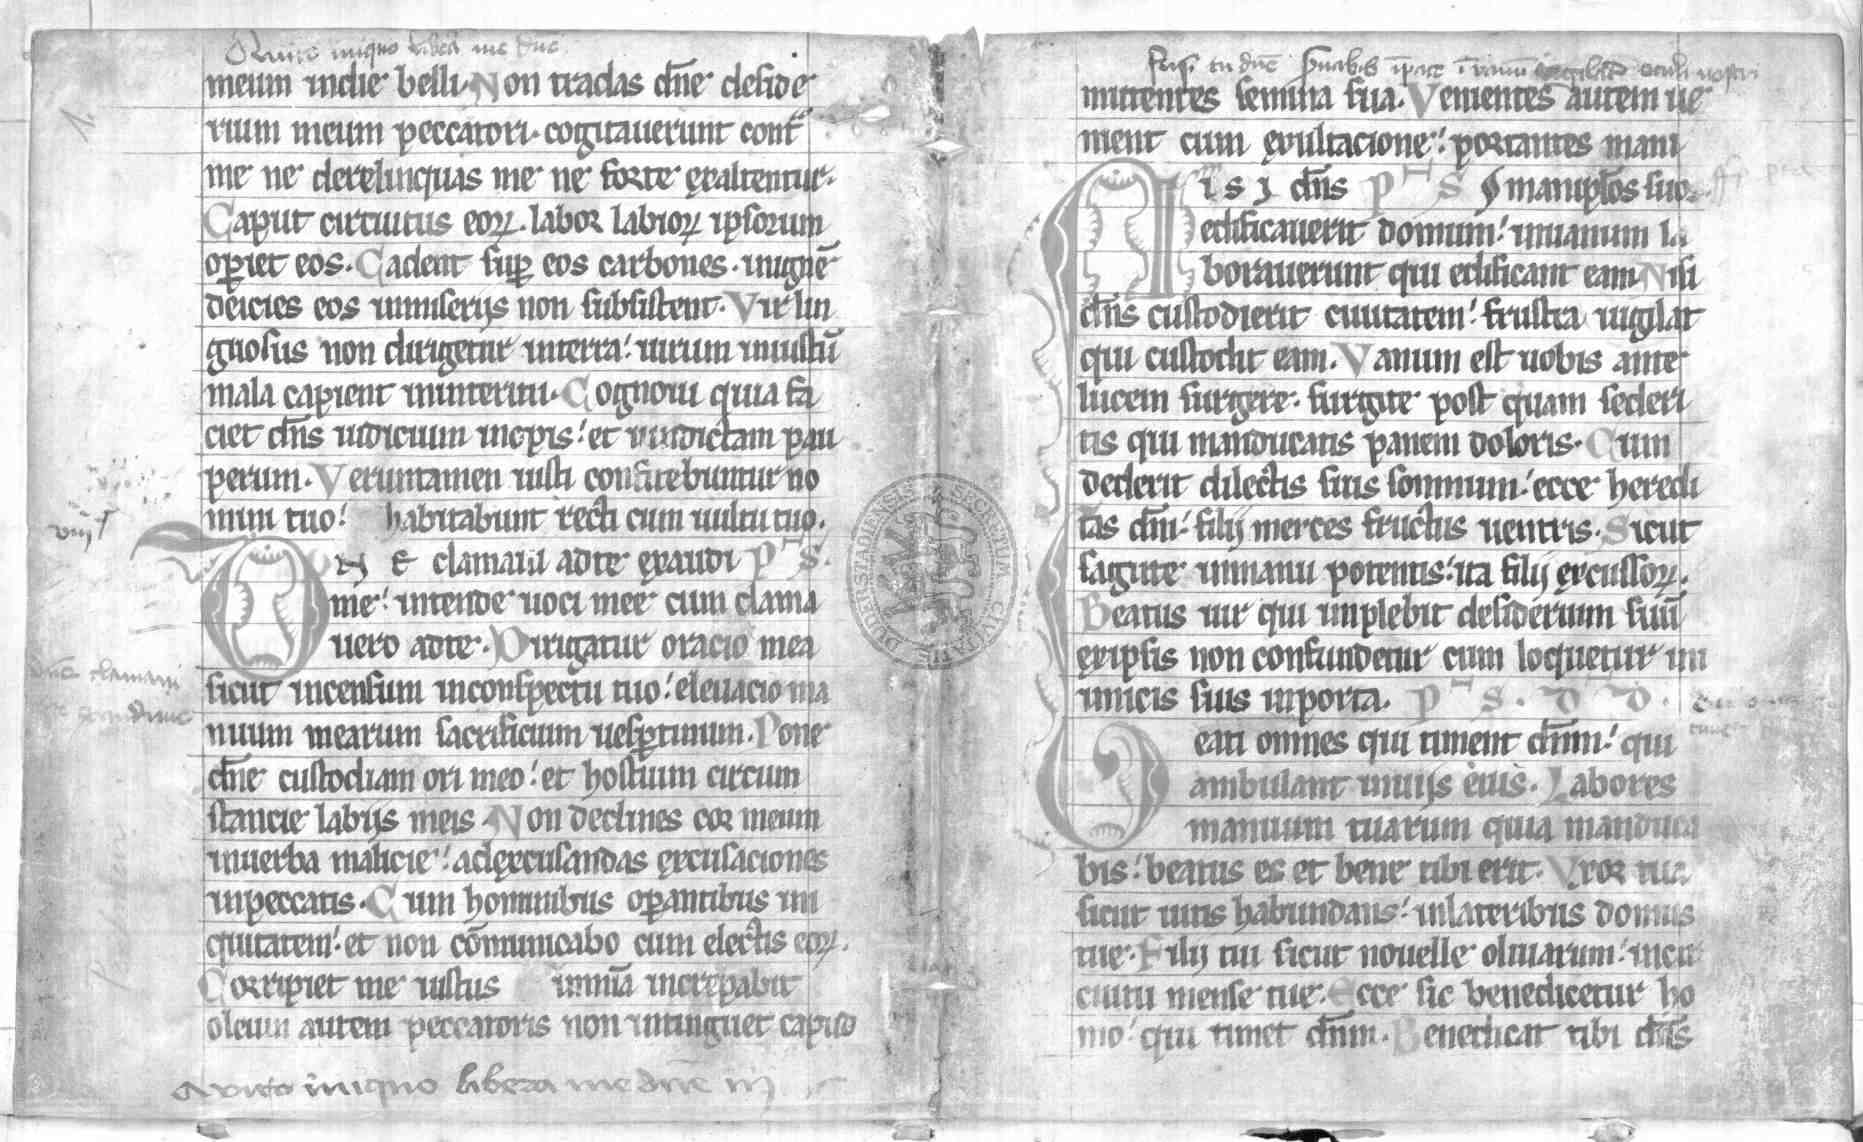 A viro iniquo libera me dne
meum indie belli. Non tradas dn̄e deside
rium meum peccatori. cogitauerunt cont̄
me ne derelinquas me ne forte exaltentur.
Caput circuitus eoꝝ. labor labioꝝ ipsorum
oꝑiet eos. Cadent suꝑ eos carbones. inignē
deicies eos inmiserijs non subsistent. Vir lin
guosus non dirigetur interra: uirum iniustū
mala capient ininteritu. Cognoui quia fa
ciet dn̄s iudicium inopis: et uindictam pau
perum. Veruntamen iusti confitebuntur no
mini tuo: habitabunt recti cum uultu tuo.
Dn̄e clamaui adte exaudi ps.
me: intende uoci mee cum clama
uero adte. Dirigatur oracio mea
sicut incensum inconspectu tuo: eleuacio ma
nuum mearum sacrificium uesꝑtinum. Pone
dn̄e custodiam ori meo: et hostium circum
stancie labijs meis. Non declines cor meum
inuerba malicie: adexcusandas excusaciones
inpeccatis. Cum hominibus oꝑantibus ini
quitatem: et non cōmunicabo cum electis eoꝝ.
Corripiet me iustus inmīa increpabit
oleum autem peccatoris non intinguet caput
A viro iniquo libera me dne
viij
dn̄e clamaui
mittentes semina sua. Venientes autem ue
nient cum exultacione: portantes mani
Nisi dn̄s ps manipl̄os suos.
edificauerit domum: inuanum la
borauerunt qui edificant eam. Nisi
dn̄s custodierit ciuitatem: frustra uigilat
qui custodit eam. Vanum est uobis ante
lucem surgere. surgite post quam sederi
tis qui manducatis panem doloris. Cum
dederit dilectis suis somnum: ecce heredi
tas dn̄i: filij merces fructus uentris. Sicut
sagitte inmanu potentis: ita filij excussoꝝ.
Beatus uir qui implebit desiderium suū
exipsis non confundetur cum loquetur ini
imicis suis inporta. ps. dd.
Beati omnes qui timent dn̄m: qui
ambulant inuijs eius. Labores
manuum tuarum quia manduca
bis: beatus es et bene tibi erit. Vxor tua
sicut uitis habundans: inlateribus domus
tue. Filij tui sicut nouelle oliuarum: incir
cuitu mense tue. Ecce sic benedicetur ho
mo: qui timet dn̄m. Benedicat tibi dn̄s